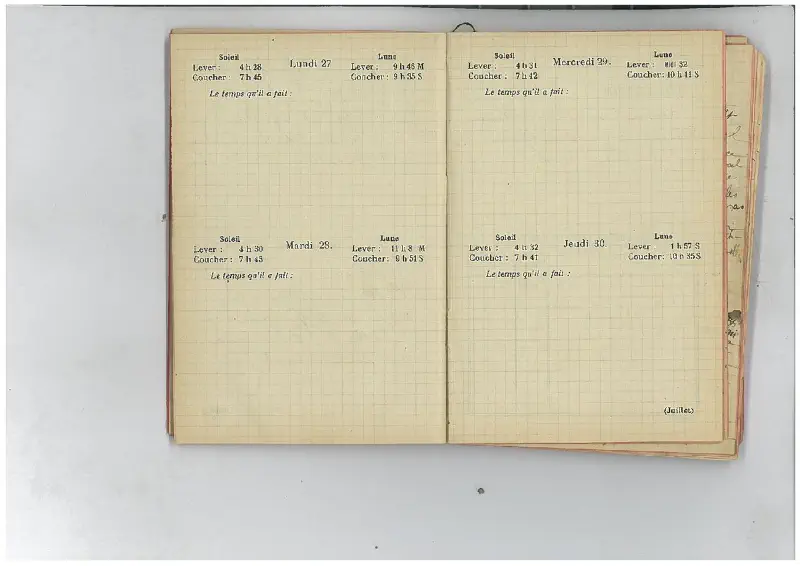 Soleil
Lever : 4 h 28
Coucher : 7 h 45
Lundi 27
Lune
Lever : 9 h 46 M
Coucher : 9 h 35 S
Le temps qu'il a fait :
Soleil
Lever : 4 h 30
Coucher : 7 h 43
Mardi 28.
Lune
Lever : 11 h 8 M
Coucher : 9 h 51 S
Le temps qu'il a fait :
Soleil
Lever : 4 h 31
Coucher : 7 h 42
Mercredi 29.
Lune
Lever : 32
Coucher : 10 h 11 S
Le temps qu'il a fait :
Soleil
Lever : 4 h 32
Coucher : 7 h 41
Jeudi 30.
Lune
Lever : 1 h 57 S
Coucher : 10 h 35 S
Le temps qu'il a fait :
(Juillet)